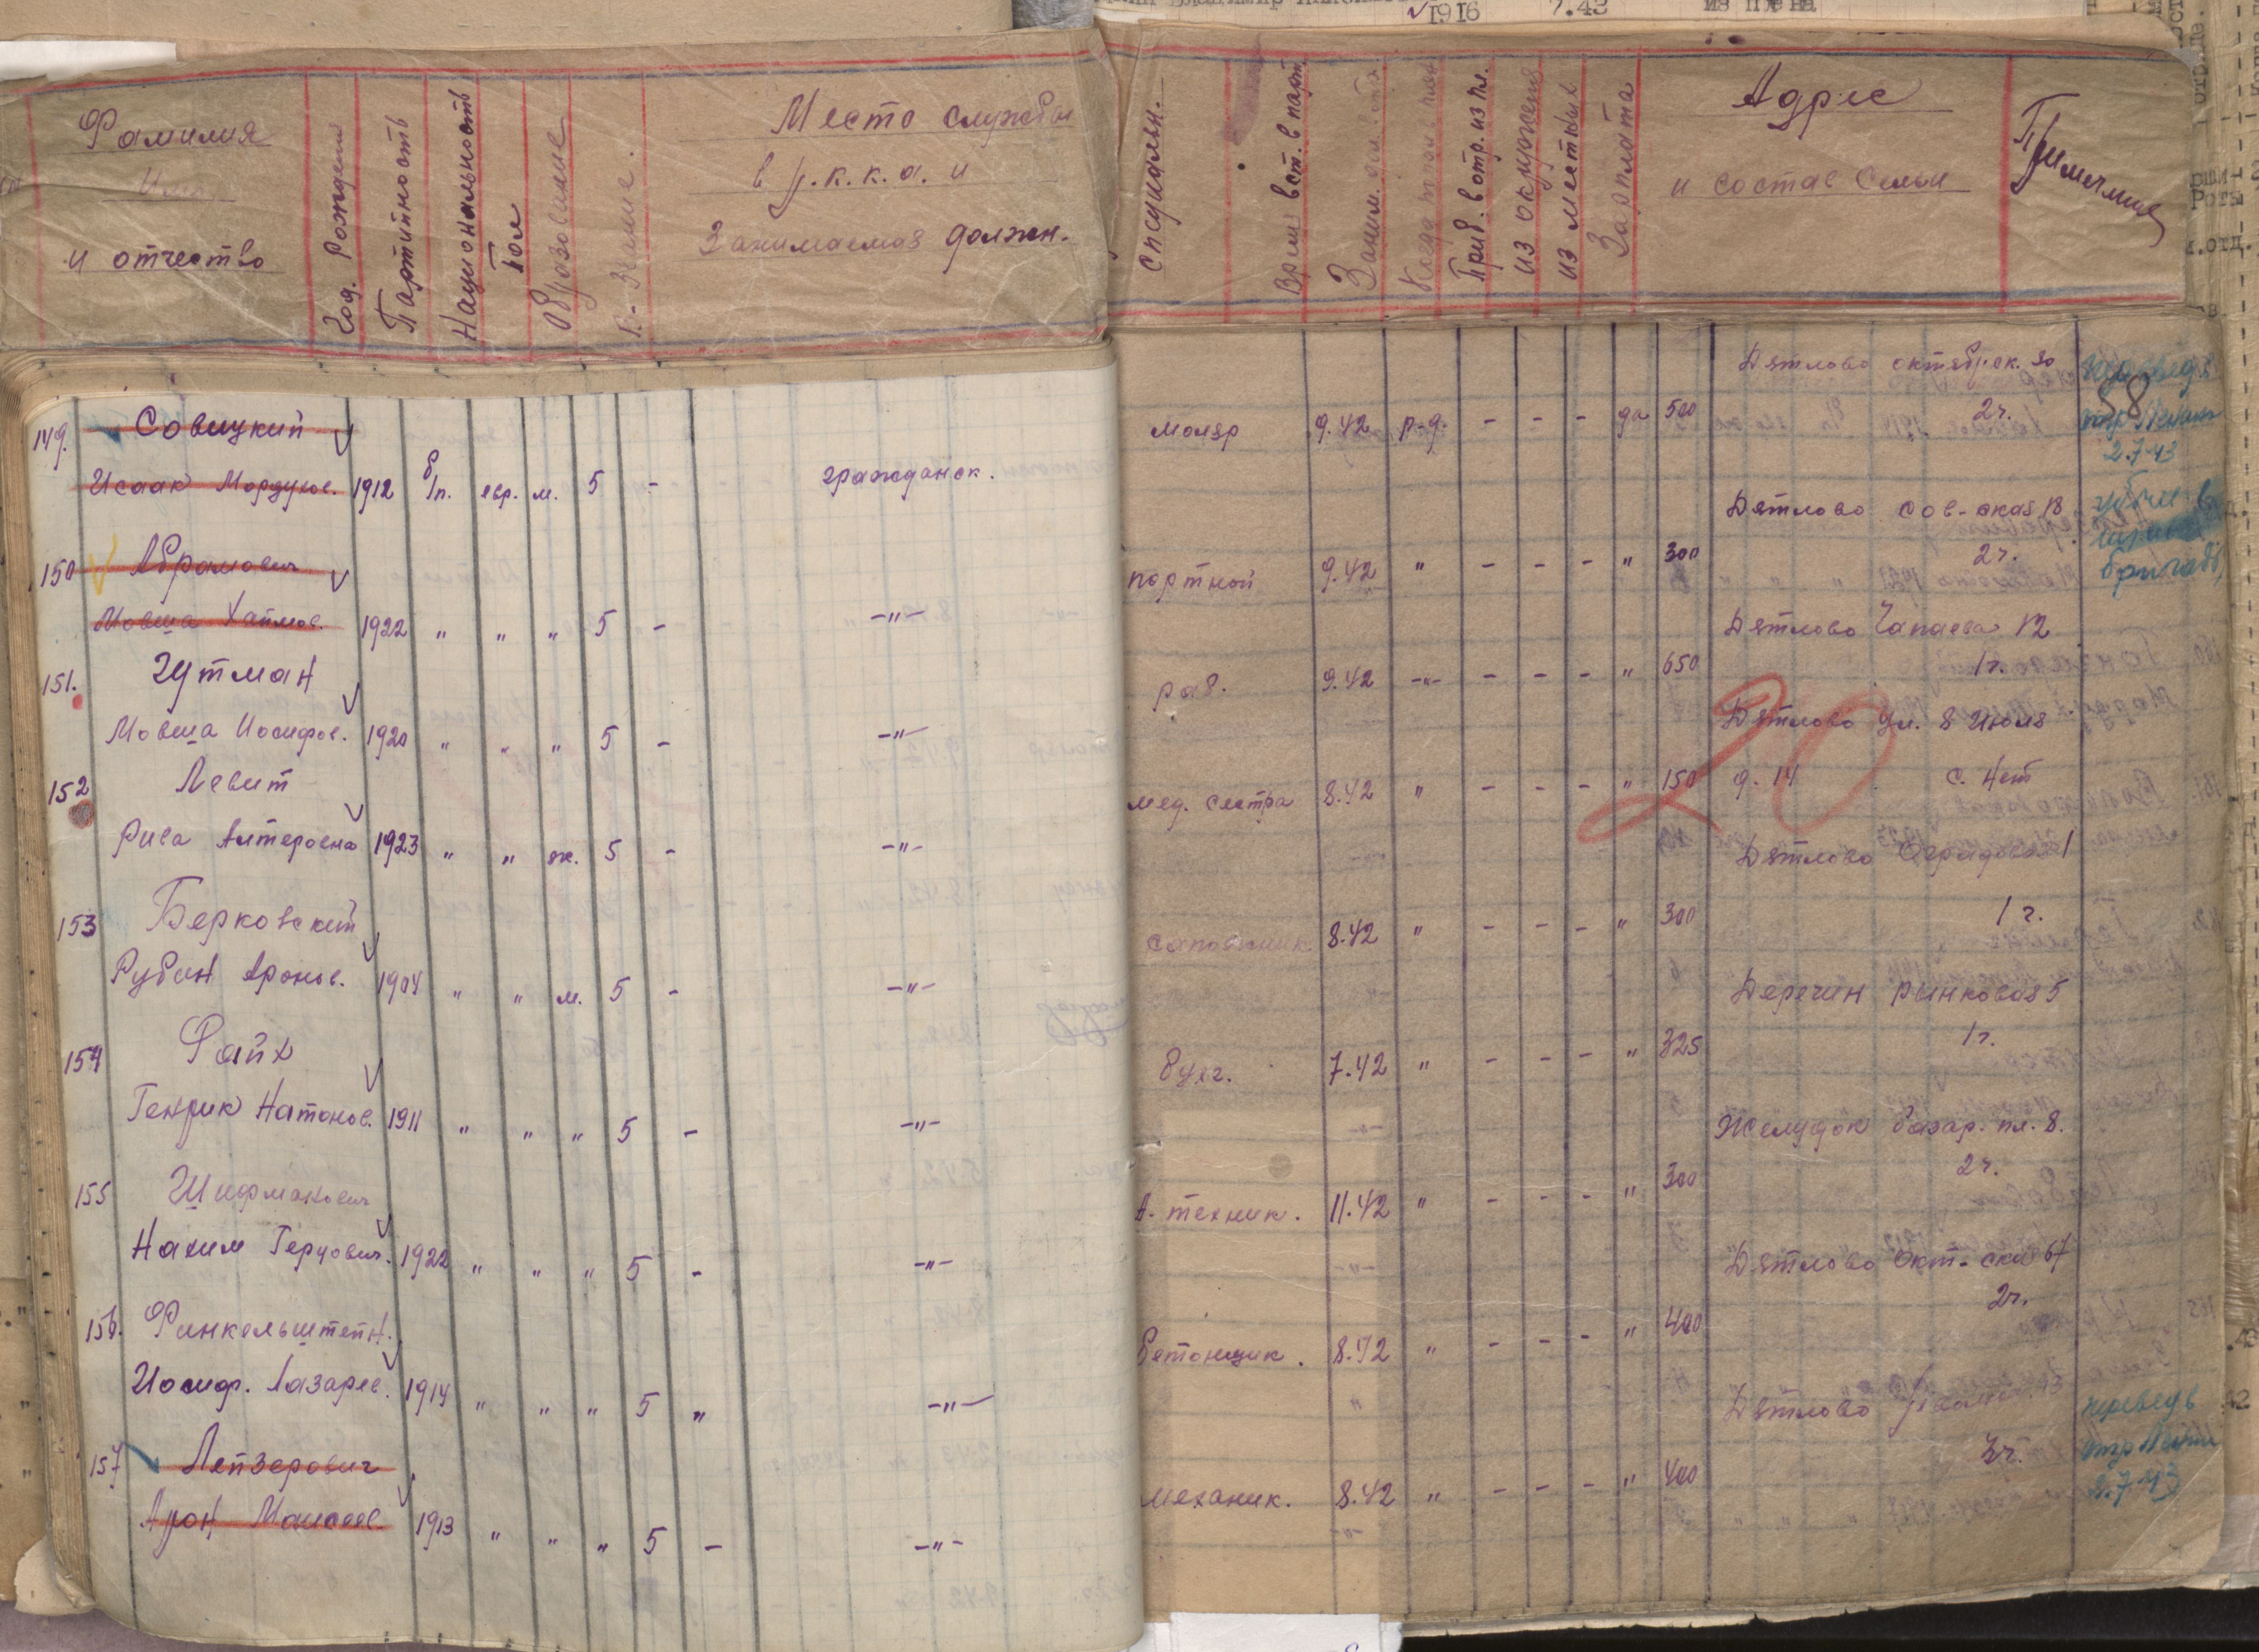 1916 7.43 из плена
Фамилия
Имя
и отчество
Год. Рождения
Партийность
Национальность
Пол
Образование
В.-Звание.
Место службы
в р.к.к.а. и
Занимаемая должн.
специальн.
Время вст. в парт.
Заним. долж.
Приб. в отр. из пл.
из окружения
из местных
Зарплата
Адрес
и состав Семьи
Примечание
58
149. Совицкий
Исаак Мордухов. 1912 б/п. евр. м. 5 - гражданск.
маляр 9.42 р-д. - - - да 500
Дятлово октябрск. 30
2ч.
перевед. в
отр. Ленин
2.7.43
150 Абрамович
Мовша Хаимов. 1922 " " " 5 - -"-
портной 9.42 " - - - " 300
Дятлово Сов-ская 18
2ч.
убыл в
бригады,
151. Гутман
Мовша Иосифов. 1920 " " " 5 - -"-
раб. 9.42 -"- - - - " 650
Дятлово Чапаева 12
1ч.
20
152 Левит
Рива Алтеровна 1923 " " ж. 5 - -"-
мед. сестра 8.42 " - - - " 150
Дятлово ул. 8 Июля
д. 14 с. нет
153 Берковский
Рубин Аронов. 1904 " " м. 5 - -"-
сапожник 8.42 " - - - " 300
Дятлово 1
1ч.
154 Файх
Генрик Натанов. 1911 " " " 5 - -"-
бухг. 7.42 " - - - " 325
Деречин рынковая 5
1ч.
155 Шифманович
Нахим Герцович. 1922 " " " 5 - -"-
А. техник. 11.42 " - - - " 300
Желудок базар. пл. 8.
2ч.
156. Финкельштейн.
Иосиф. Лазарев. 1914 " " " 5 " -"-
бетонщик. 8.42 " - - - " 400
Дятлово Окт-ская 67
2ч.
157 Лейзерович
Арон Моисеев. 1913 " " " 5 - -"-
механик. 8.42 " - - - " 400
Дятлово
3ч.
переведь
отр Ленин
2.7.43